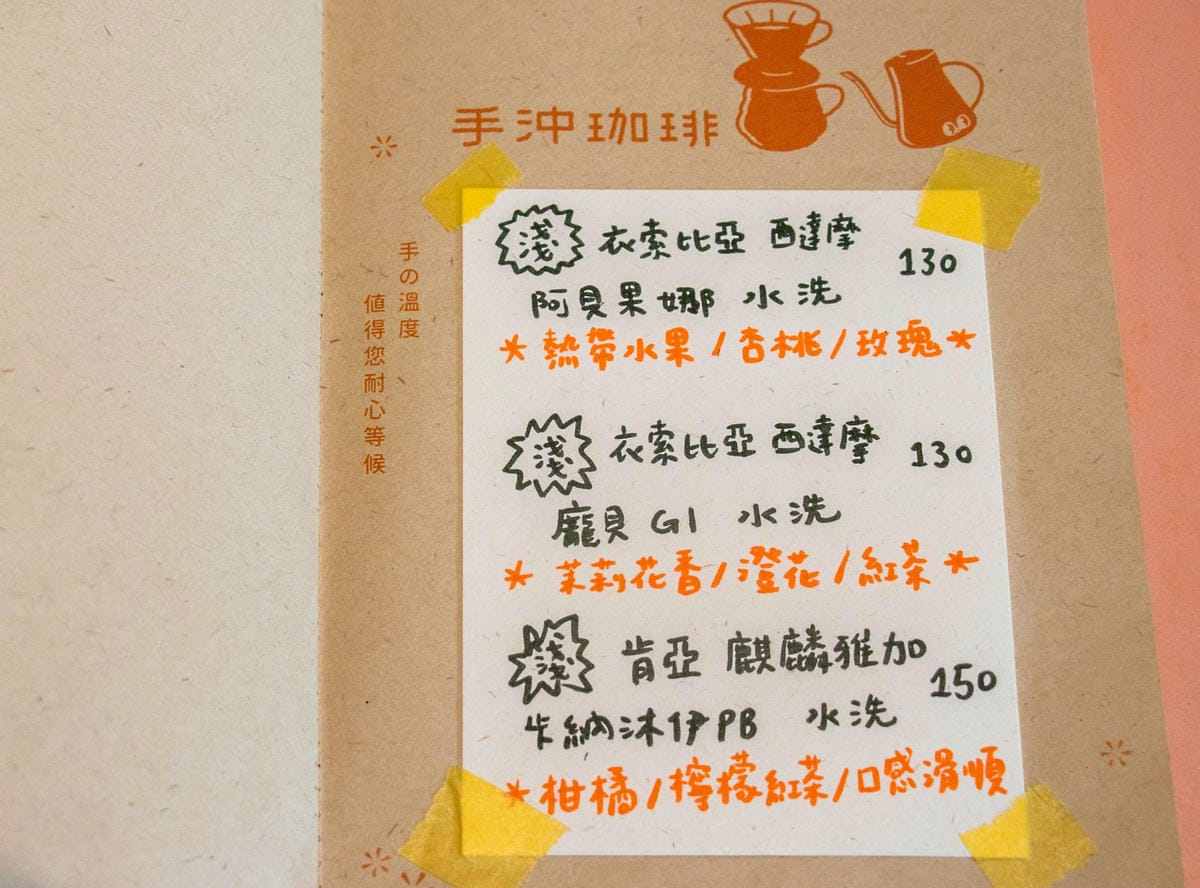 手沖珈琲
手の溫度
値得您耐心等候
淺 衣索比亞 西達摩 130
阿貝果娜 水洗
*熱帶水果/杏桃/玫瑰*
淺 衣索比亞 西達摩 130
龐貝 G1 水洗
*茉莉花香/澄花/紅茶*
淺 肯亞 麒麟雅加 150
卡納沐伊PB 水洗
*柑橘/檸檬紅茶/口感滑順